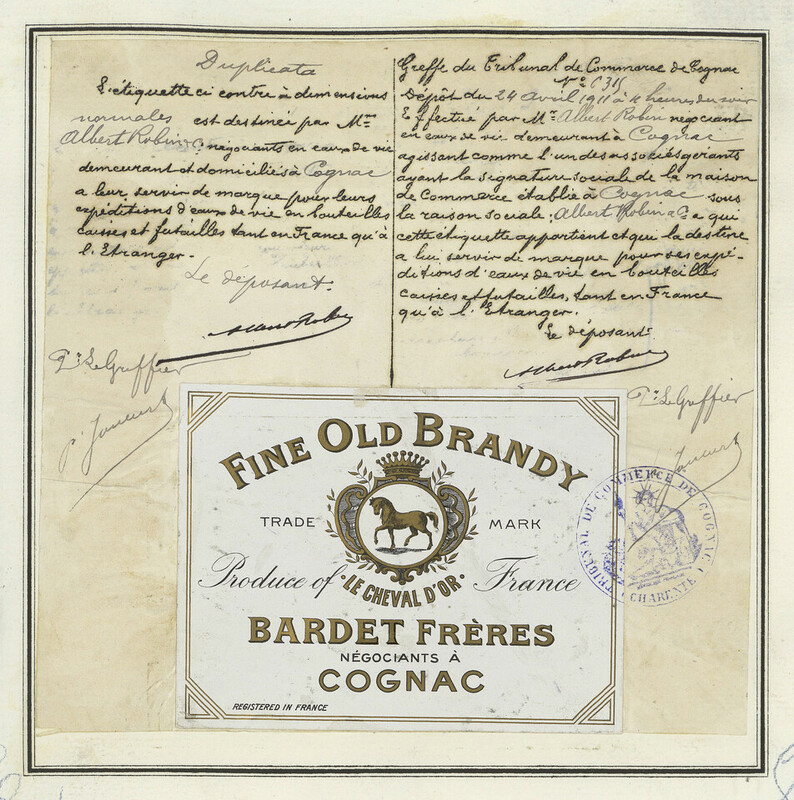 Duplicata
L'étiquette ci contre à dimensions
normales est destinée par Mrs
Albert Robin & Co négociants en eaux de vie
demeurant et domiciliés à Cognac
a leur servir de marque pour leurs
expéditions d'eaux de vie en bouteilles
caisses et futailles tant en France qu'à
l'Etranger.-
Le déposant.
Albert Robin
Pr Le Greffier
Greffe du Tribunal de Commerce de Cognac
Dépôt du 24 avril 1911 à 4 heures du soir
Effectué par Mr Albert Robin négociant
en eaux de vie demeurant à Cognac
agissant comme l'un des associés gérants
ayant la signature sociale de la maison
de Commerce établie à Cognac sous
la raison sociale: Albert Robin & Co a qui
cette étiquette appartient et qui la destine
a lui servir de marque pour ses expé-
ditions d'eaux de vie en bouteilles
caisses et futailles, tant en France
qu'à l'Etranger.
Le déposant
Albert Robin
Pr Le Greffier
FINE OLD BRANDY
TRADE MARK
Produce of France
LE CHEVAL D'OR
BARDET FRÈRES
NÉGOCIANTS À
COGNAC
REGISTERED IN FRANCE
TRIBUNAL DE COMMERCE DE COGNAC
CHARENTE